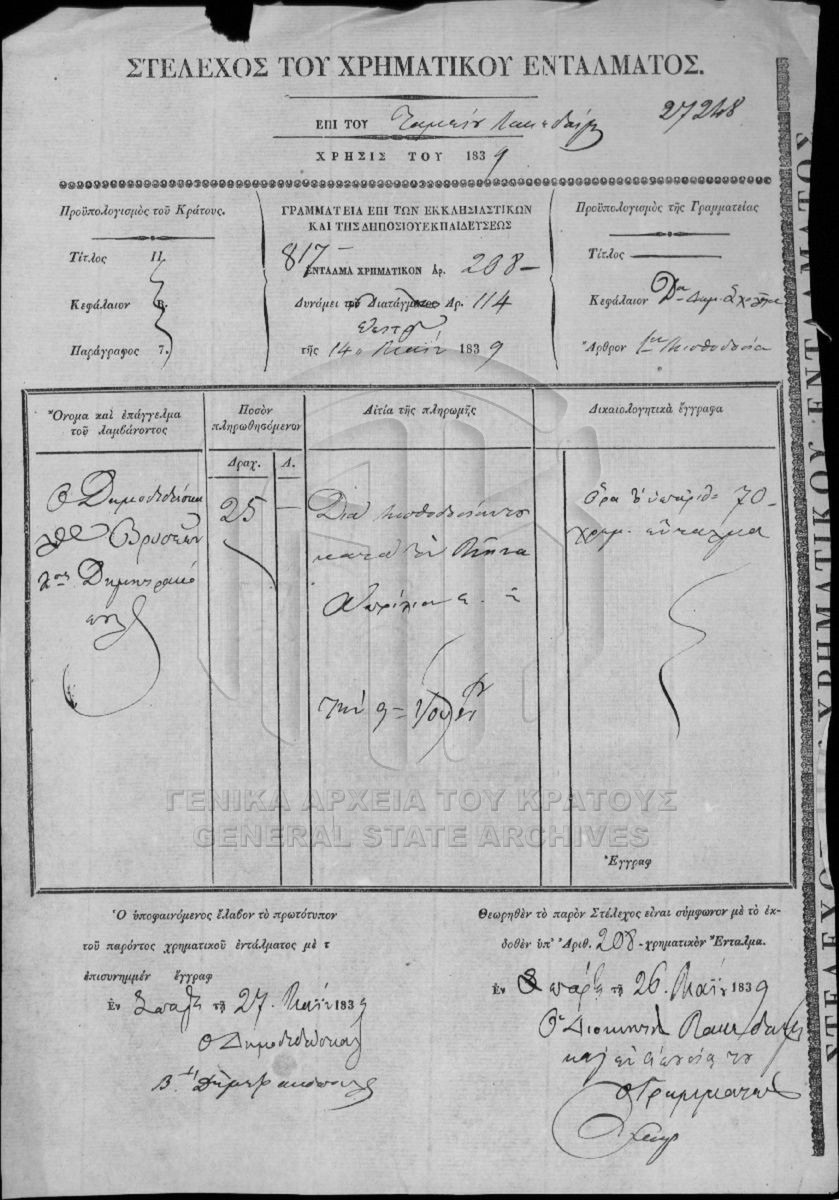 ΣΤΕΛΕΧΟΣ ΤΟΥ ΧΡΗΜΑΤΙΚΟΥ ΕΝΤΑΛΜΑΤΟΣ.
27248
ΕΠΙ ΤΟΥ Ταμείου
ΧΡΗΣΙΣ ΤΟΥ 1839
Προϋπολογισμὸς τοῦ Κράτους.
Τίτλος II.
Κεφάλαιον
Παράγραφος 7.
ΓΡΑΜΜΑΤΕΙΑ ΕΠΙ ΤΩΝ ΕΚΚΛΗΣΙΑΣΤΙΚΩΝ
ΚΑΙ ΤΗΣ ΔΗΜΟΣΙΟΥ ΕΚΠΑΙΔΕΥΣΕΩΣ
817
ΕΝΤΑΛΜΑ ΧΡΗΜΑΤΙΚΟΝ Αρ. 208
Δυνάμει τοῦ Διατάγματος Αρ. 114
τῆς 14 Μαΐου 1839
Προϋπολογισμὸς τῆς Γραμματείας
Τίτλος
Κεφάλαιον
Ἄρθρον Μισθοδοσία
Ὄνομα καὶ ἐπάγγελμα
τοῦ λαμβάνοντος
Ποσὸν
πληρωθησόμενον
Δραχ. Λ.
Αἰτία τῆς πληρωμῆς
Δικαιολογητικὰ ἔγγραφα
Ὁ Δημοδιδάσκα
λος Βρυσεῶν
Δημητρακό
πουλος
25 —
Διὰ μισθοδοσίαν του
κατὰ τὸν Μῆνα
Ἀπρίλιον
Ὅρα 70
χρημ. ἔνταλμα
Ἔγγραφ
ΓΕΝΙΚΑ ΑΡΧΕΙΑ ΤΟΥ ΚΡΑΤΟΥΣ
GENERAL STATE ARCHIVES
Ὁ ὑποφαινόμενος ἔλαβον τὸ πρωτότυπον
τοῦ παρόντος χρηματικοῦ ἐντάλματος μὲ τ
ἐπισυνημμέν ἔγγραφ
Ἐν Σπάρτῃ τῇ 27 Μαΐου 1839
Ὁ Δημοδιδάσκαλος
Δημητρακόπουλος
Θεωρηθὲν τὸ παρὸν Στέλεχος εἶναι σύμφωνον μὲ τὸ ἐκ-
δοθὲν ὑπ' Ἀριθ. 208 χρηματικὸν Ἔνταλμα.
Ἐν Σπάρτῃ τῇ 26 Μαΐου 1839
Ὁ Διοικητὴς Λακεδαίμ
καὶ ἐν ἀπουσίᾳ του
ὁ Γραμματεὺς
ΣΤΕΛΕΧΟΣ ΤΟΥ ΧΡΗΜΑΤΙΚΟΥ ΕΝΤΑΛΜΑΤΟΣ